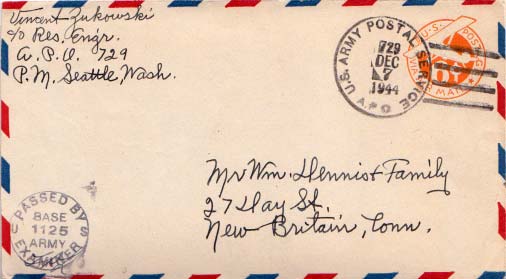 Vincent Zukowski
c/o Res. Engr.
A.P.O. 729
P.M. Seattle, Wash.
U.S. ARMY POSTAL SERVICE
729
DEC
7
1944
A.P.O.
U.S. POSTAGE
6¢
VIA AIR MAIL
Mr Wm. Dennis & Family
27 Day St.
New Britain, Conn.
PASSED BY
BASE
1125
U ARMY S
EXAMINER